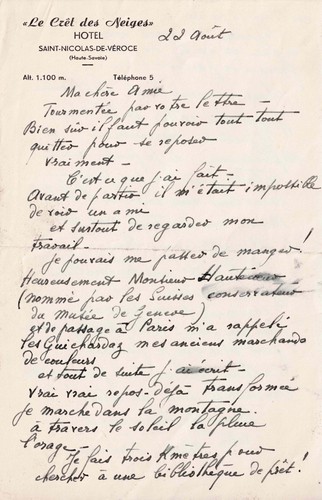 «Le Crêt des Neiges»
HOTEL
SAINT-NICOLAS-DE-VÉROCE
(Haute-Savoie)
22 Août
Alt. 1.100 m.
Téléphone 5
Ma chère Amie
Tourmentée par votre lettre
Bien sûr il faut pouvoir tout tout
quitter pour se reposer
vraiment —
C'est ce que j'ai fait —
Avant de partir il m'était impossible
de voir un ami
et surtout de regarder mon
travail —
je pouvais me passer de manger !
Heureusement Monsieur
(nommé par les Suisses conservateur
du Musée de Genève)
et de passage à Paris m'a rappelé
les Guichardaz mes anciens marchands
de couleurs
et tout de suite j'ai écrit —
vrai vrai repos — déjà transformée
je marche dans la montagne
à travers le soleil la pluie
l'orage —
Je fais trois Kmètres pour
chercher à une bibliothèque de prêt !